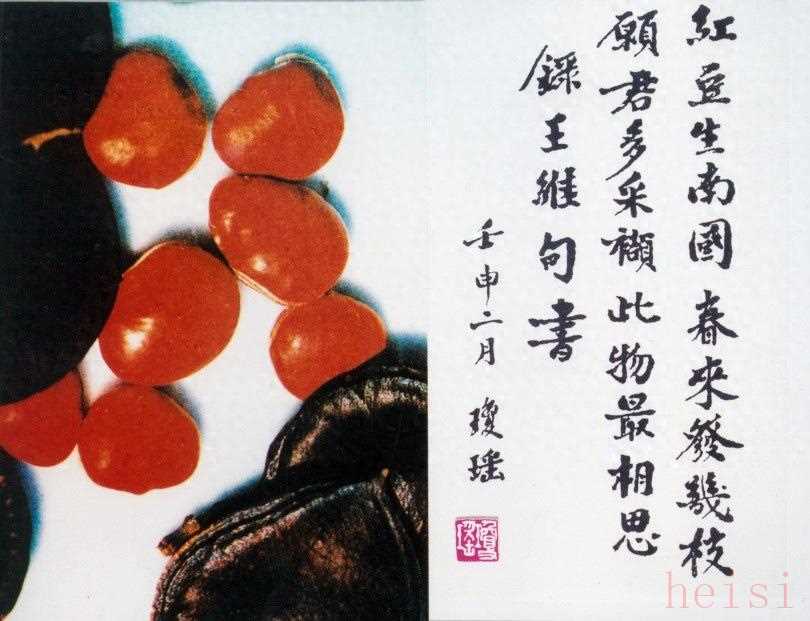 紅豆生南國春來發幾枝
願君多采襭此物最相思
錄王維句書
壬申二月 瓊瑤
heisi